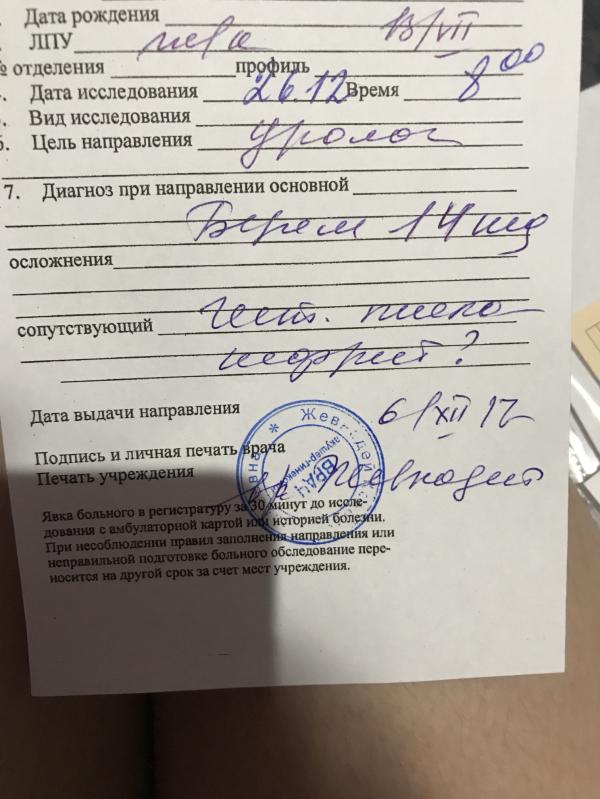 Дата рождения
ЛПУ 13/VII
№ отделения профиль
Дата исследования 26.12 Время 8 00
Вид исследования
Цель направления уролог
7. Диагноз при направлении основной
Берем 14 нед
осложнения
сопутствующий Гест. пиело
нефрит?
Дата выдачи направления 6/XII 17
Подпись и личная печать врача
Печать учреждения
ВРАЧ
Явка больного в регистратуру за 30 минут до иссле-
дования с амбулаторной картой или историей болезни.
При несоблюдении правил заполнения направления или
неправильной подготовке больного обследование пере-
носится на другой срок за счет мест учреждения.